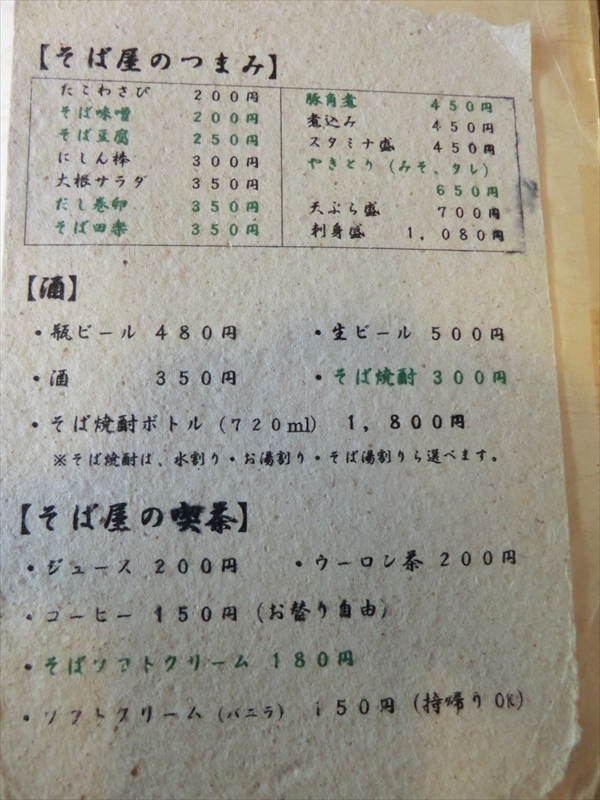 【そば屋のつまみ】
たこわさび 200円
そば味噌 200円
そば豆腐 250円
にしん棒 300円
大根サラダ 350円
だし巻卵 350円
そば田楽 350円
豚角煮 450円
煮込み 450円
スタミナ盛 450円
やきとり(みそ、タレ)
650円
天ぷら盛 700円
刺身盛 1,080円
【酒】
・瓶ビール 480円 ・生ビール 500円
・酒 350円 ・そば焼酎 300円
・そば焼酎ボトル(720ml) 1,800円
※そば焼酎は、水割り・お湯割り・そば湯割りら選べます。
【そば屋の喫茶】
・ジュース 200円 ・ウーロン茶 200円
・コーヒー 150円(お替り自由)
・そばソフトクリーム 180円
・ソフトクリーム(バニラ) 150円(持帰りOK)